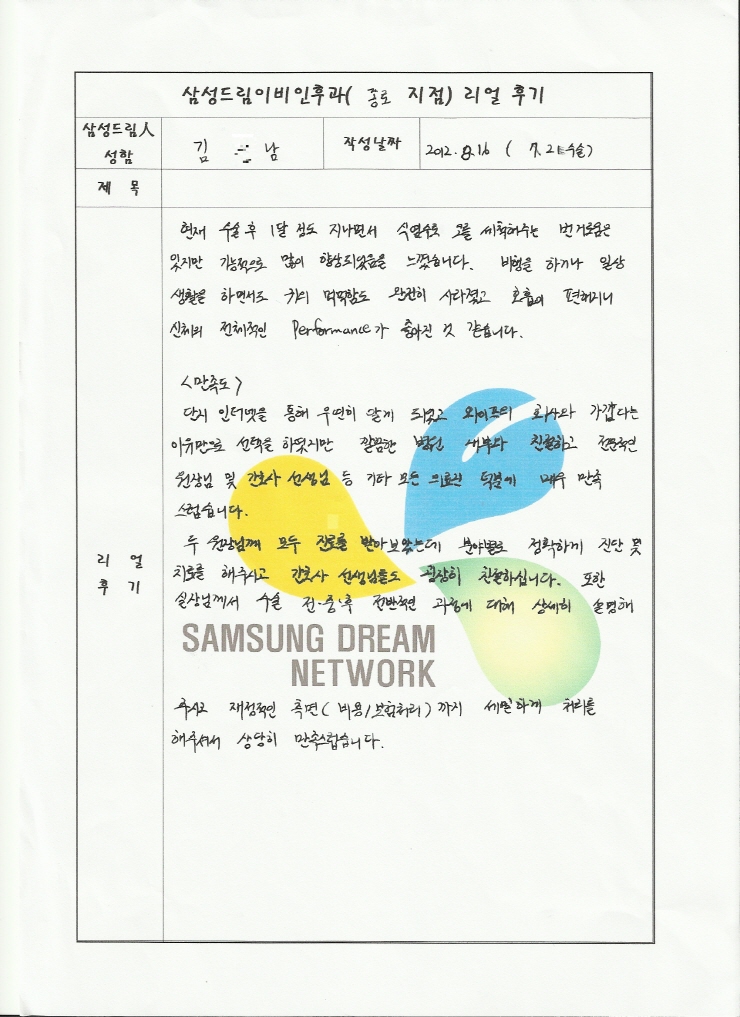 삼성드림이비인후과( 종로 지점) 리얼 후기
삼성드림人 성함
김 남
작성날짜
2012. 8.16 ( 7.21 수술)
제 목
리 얼 후 기
현재 수술 후 1달 정도 지나면서 식염수로 코를 세척해주는 번거로움은
있지만 기능적으로 많이 향상되었음을 느꼈습니다. 비행을 하거나 일상
생활을 하면서도 귀의 먹먹함도 완전히 사라졌고 호흡이 편해지니
신체의 전체적인 Performance가 좋아진 것 같습니다.
<만족도>
단지 인터넷을 통해 우연히 알게 되었고 와이프의 회사와 가깝다는
이유만으로 선택을 하였지만 깔끔한 병원 내부와 친절하고 전문적인
원장님 및 간호사 선생님 등 기타 모든 의료진 덕분에 매우 만족
스럽습니다.
두 원장님께 모두 진료를 받아보았는데 분야별로 정확하게 진단 및
치료를 해주시고 간호사 선생님들도 굉장히 친절하십니다. 또한
실장님께서 수술 전·중·후 전반적인 과정에 대해 상세히 설명해
SAMSUNG DREAM
NETWORK
주시고 재정적인 측면( 비용/보험처리) 까지 세밀하게 처리를
해주셔서 상당히 만족스럽습니다.